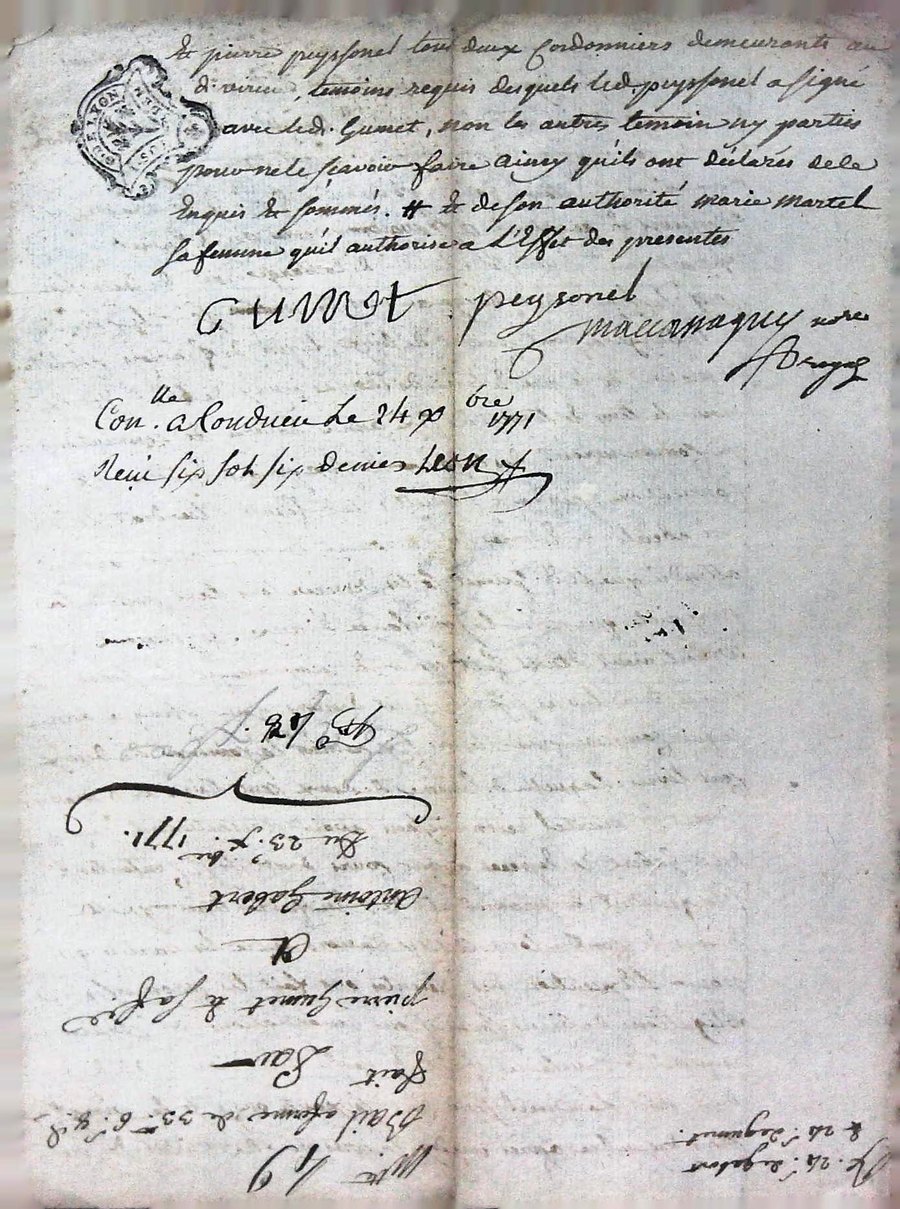 Et pierre peyssonel tous deux Cordonniers demeurants au
d. virieu, temoins requis desquels led. peyssonel a signé
avec led. Gumet, non les autres temoin ny parties
pour ne le scavoir faire ainsy quils ont déclarés de ce
Enquis Et sommés. # Et de son authorité marie martel
sa femme quil authorise a l'Effet des presentes
GUMET peysonel
maccanaguy nore
Con.lle a Condrieu Le 24 xbre 1771
Reçu six sols six deniers Leon
Du 23. xbre 1771.
antoine Gabert
A
pierre Gumet & sa fe
Par
fait
Bail a ferme de
49
24 s. de gabert
& 24 s. de gumet.